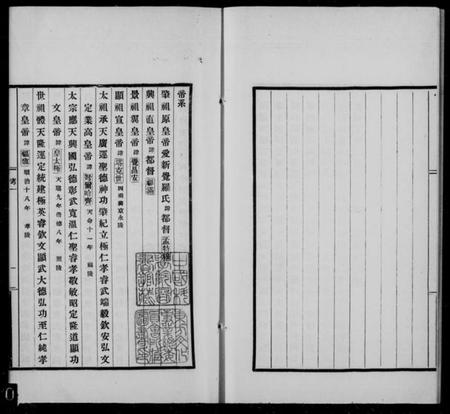 帝系
肇祖原皇帝愛新覺羅氏諱都督孟特穆
興祖直皇帝諱都督福滿
景祖翼皇帝諱覺昌安
顯祖宣皇帝諱塔克世 四祖葬京永陵
太祖承天廣運聖德神功肇紀立極仁孝睿武端毅欽安弘文
定業高皇帝諱努爾哈齊 天命十一年 福陵
太宗應天興國弘德彰武寬溫仁聖睿孝敬敏昭定隆道顯功
文皇帝諱皇太極 天聰九年崇德八年 昭陵
世祖體天隆運定統建極英睿欽文顯武大德弘功至仁純孝
章皇帝諱福臨 順治十八年 孝陵